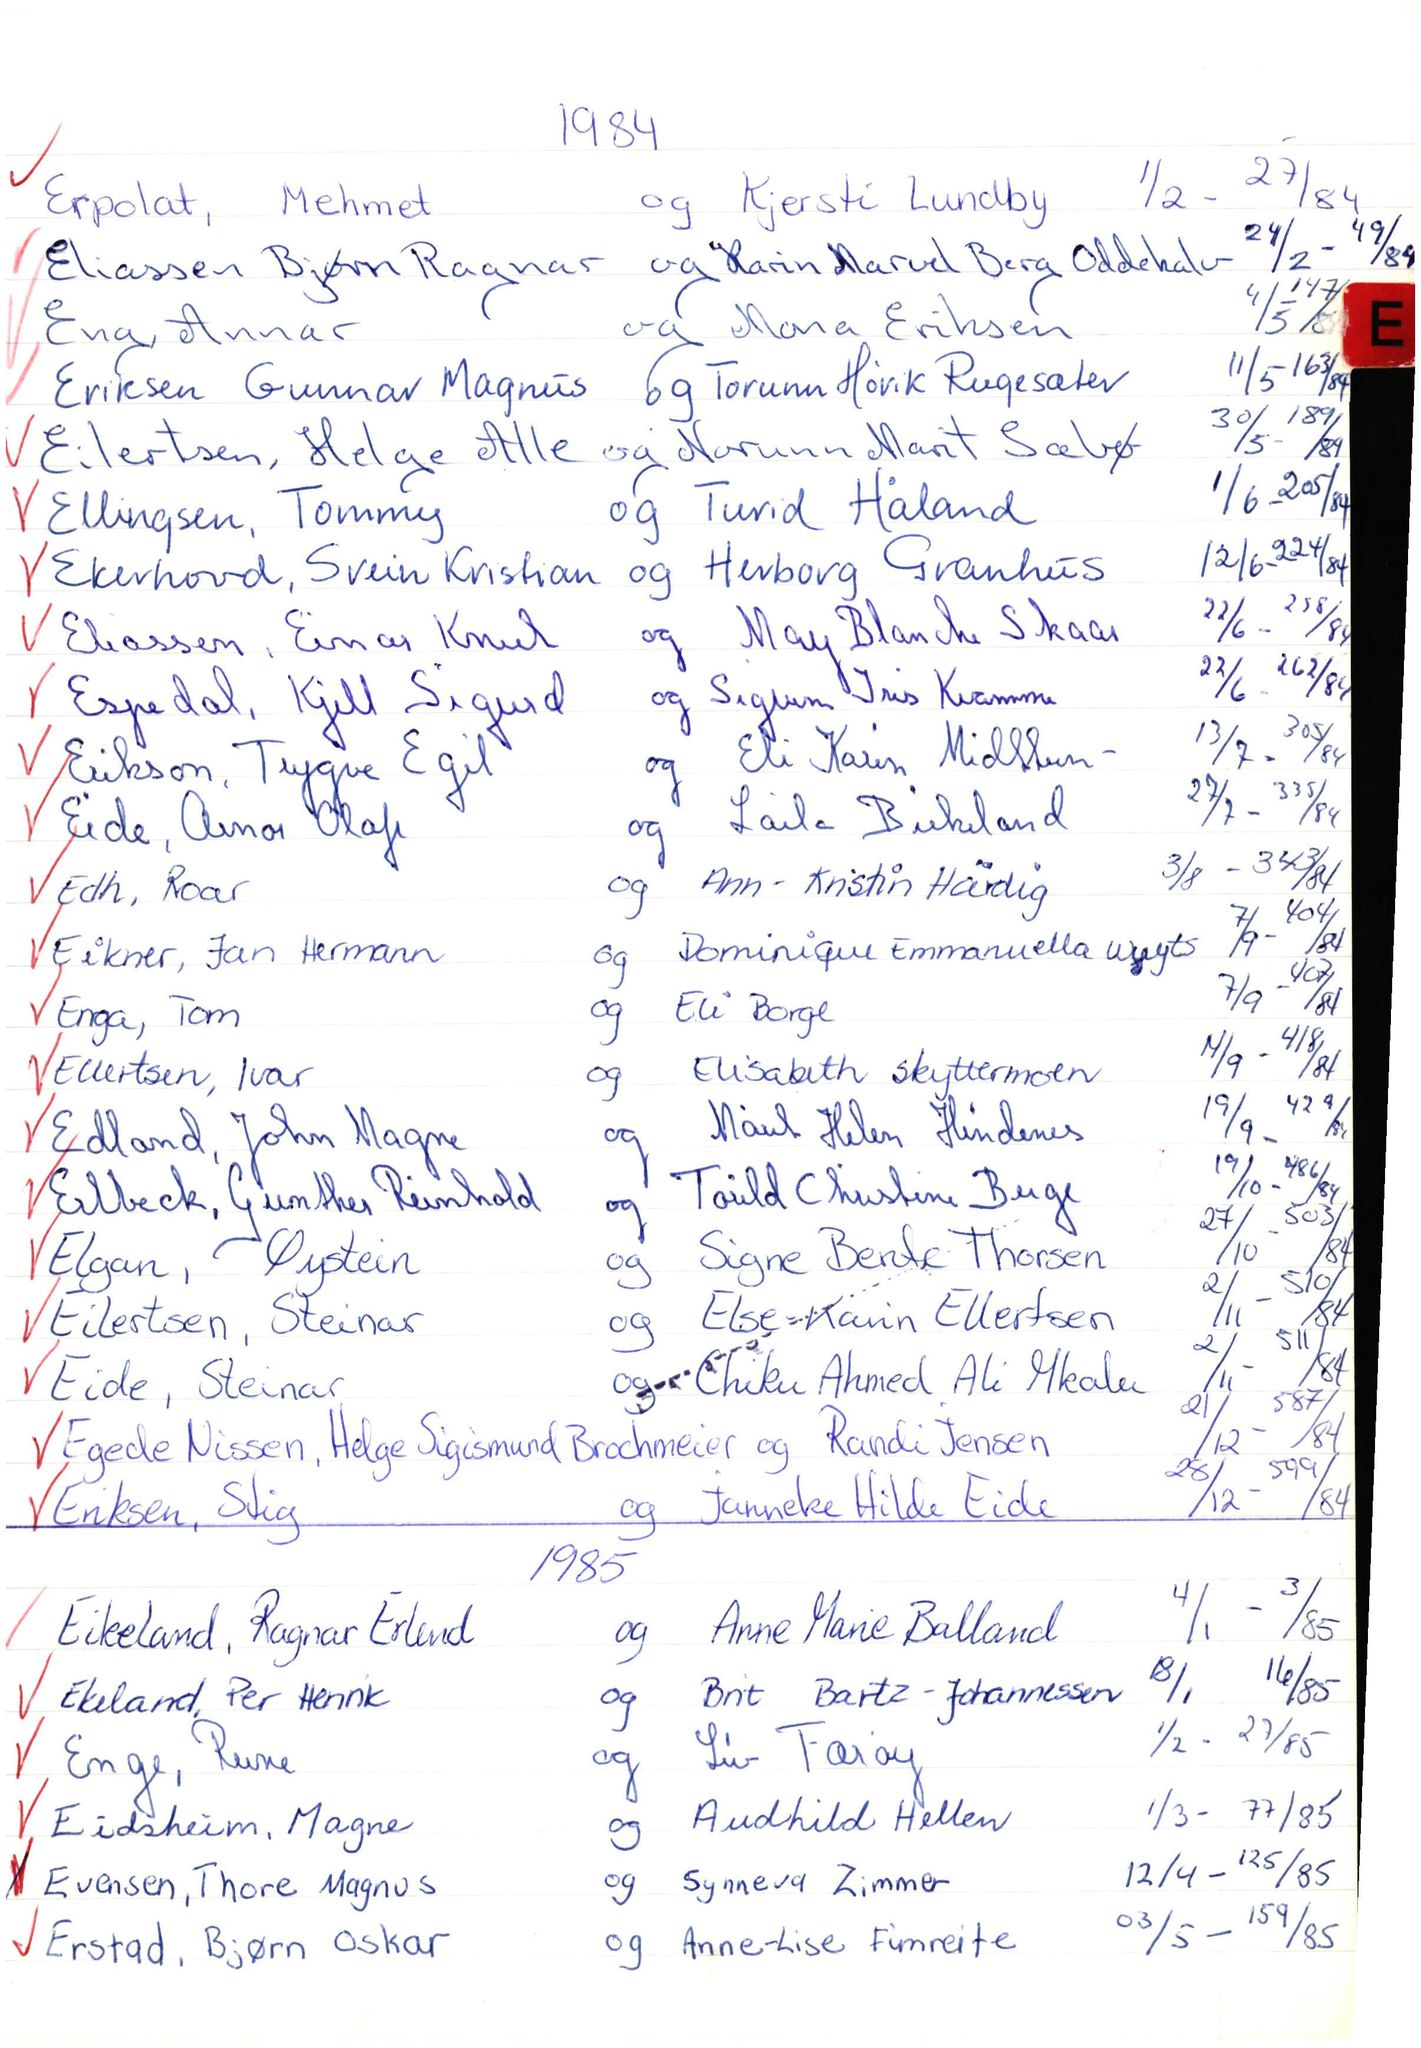 1984
Erpolat, Mehmet og Kjersti Lundby 1/2 - 27/84
Eliassen Bjørn Ragnar og Karin Marvel Berg Oddekalv 24/2 - 49/84
Eng, Annar og Mona Eriksen 4/5 - 147/84
E
Eriksen Gunnar Magnus og Torunn Hovik Rugesæter 11/5 - 163/84
Eilertsen, Helge Atle og Norunn Marit Sæbø 30/5 - 189/84
Ellingsen, Tommy og Turid Håland 1/6 - 205/84
Ekerhovd, Svein Kristian og Herborg Granhus 12/6 - 224/84
Eliassen, Einar Knut og May Blanche Skaar 22/6 - 258/84
Espedal, Kjell Sigurd og Sigrunn Iris Kvamme 22/6 - 262/84
Erikson, Trygve Egil og Eli Karin Midttun - 13/7 - 305/84
Eide, Arnor Olaf og Laila Birkeland 27/7 - 335/84
Edh, Roar og Ann-Kristin Härdig 3/8 - /84
Eikner, Jan Hermann og Dominique Emmanuella Wuyts 7/9 - 404/84
Enga, Tom og Eli Borge 7/9 - 407/84
Ellertsen, Ivar og Elisabeth Skyttermoen 14/9 - 418/84
Edland, John Magne og Marit Helen Hindenes 19/9 - 429/84
Erlbeck, Gunther Reinhold og Torild Christine Berge 19/10 - 486/84
Elgan, Øystein og Signe Bente Thorsen 27/10 - 503/84
Eilertsen, Steinar og Else-Karin Ellertsen 2/11 - 510/84
Eide, Steinar og Chiku Ahmed Ali Mkalu 2/11 - 511/84
Egede Nissen, Helge Sigismund Brochmeier og Randi Jensen 21/12 - 587/84
Eriksen, Stig og Janneke Hilde Eide 28/12 - 599/84
1985
Eikeland, Ragnar Erlend og Anne Marie Balland 4/1 - 3/85
Ekeland, Per Henrik og Brit Bartz-Johannessen 18/1 16/85
Enge, Rune og Liv Færøy 1/2 - 27/85
Eidsheim, Magne og Audhild Hellen 1/3 - 77/85
Evensen, Thore Magnus og Synneva Zimmer 12/4 - 125/85
Erstad, Bjørn Oskar og Anne-Lise Fimreite 03/5 - 159/85